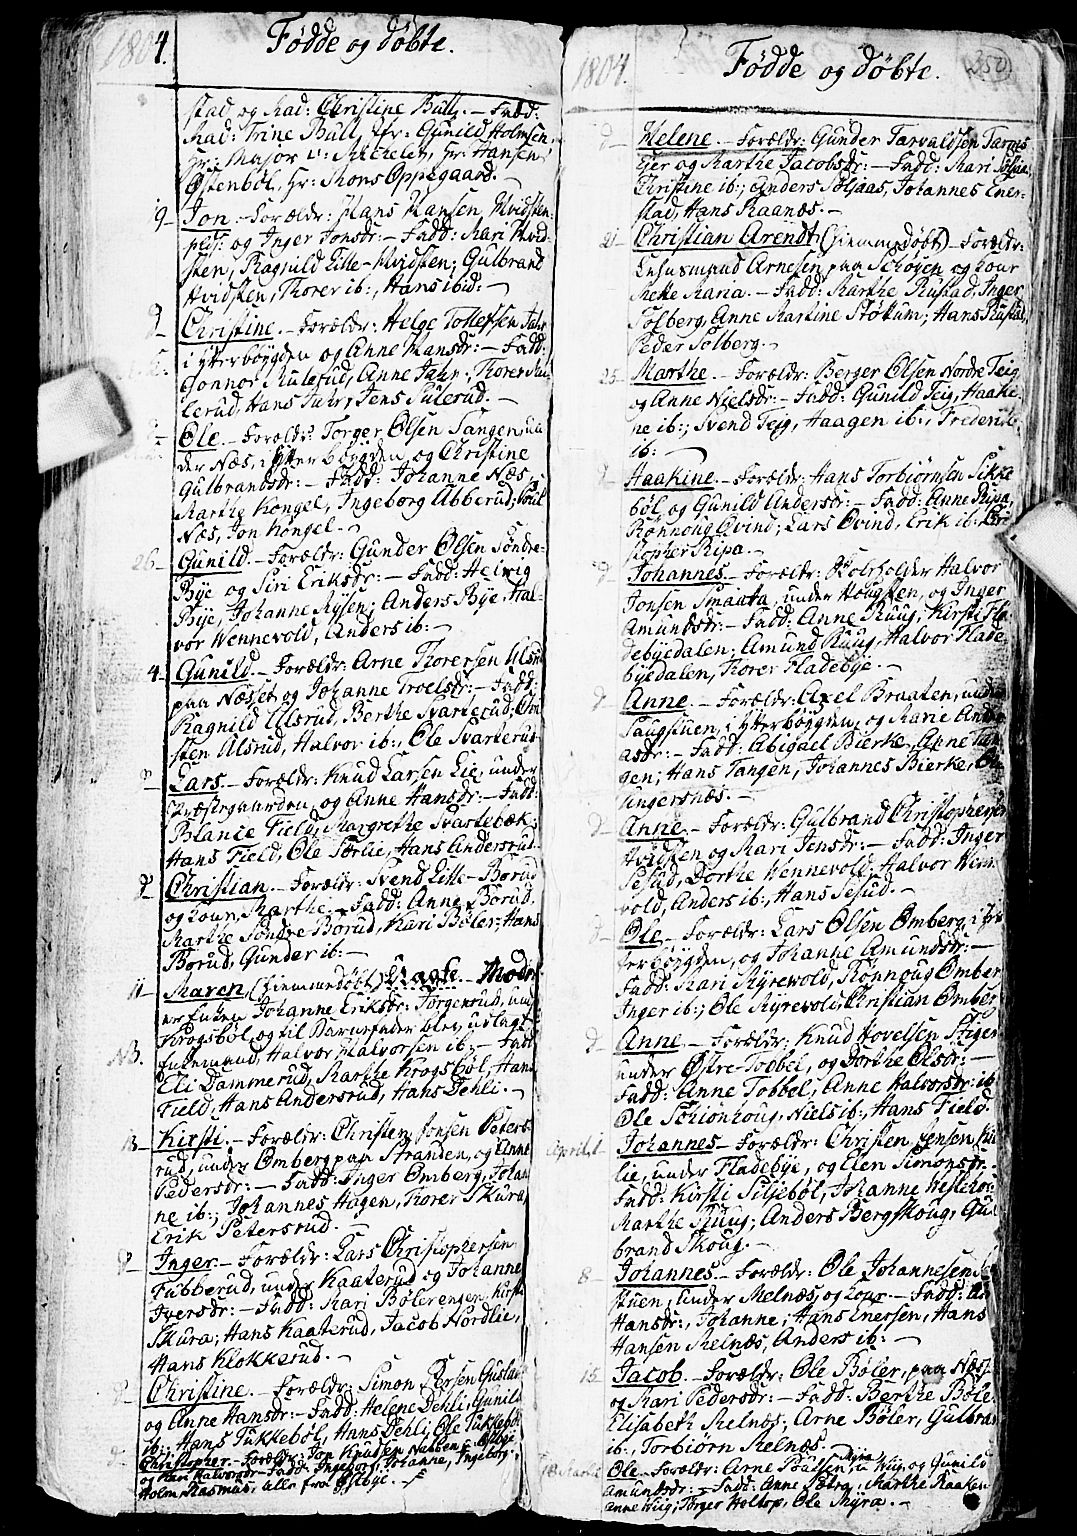 1804.
Fødde og døbte.
stad og Mad: Christine Bull. — Fadd:
Mad: Trine Bull, Jfr: Gunild Holmsen,
Hr: Major v: Michelet, Hr: Hansen
Østenbøl, Hr: Mons Oppegaard. —
19 — Jon. — Forældr: Hans Hansen Hvidsten
plds: og Inger Jonsdr: — Fadd: Kari Hvid-
sten, Ragnild Lille-Hvidsten; Gulbrand
Hvidsten, Thorer ib:, Hans ibid: —
d — Christine. — Forældr: Helge Tollefsen Jahr
i Ytterbøygden og Anne Hansdr: — Fadd:
Gonnor Mulerud, Anne Jahr; Thorer Mu-
lerud, Hans Jahr, Jens Sulerud. —
d — Ole. — Forældr: Torger Olsen Tangen, un-
der Næs, i Ytterbøygden, og Christine
Gulbrandsdr: — Fadd: Johanne Næs,
Marthe Kongel, Ingeborg Abberud;
Næs, Jon Kongel. —
26 — Gunild. — Forældr: Gunder Olsen Søndre-
Bye og Siri Eriksdr: — Fadd: Helwig
Bye, Johanne Rysen; Anders Bye, Hal-
vor Wennevold, Anders ib: —
4 — Gunild. — Forældr: Arne Thorersen Ulsrud
paa Næsset og Johanne Troelsdr: — Fadd:
Ragnild Ulsrud, Berthe Svarterud;
sten Ulsrud, Halvor ib:, Ole Svarterud
d — Lars. — Forældr: Knud Larsen Lie, under
Præstegaarden, og Anne Hansdr: — Fadd:
Blance Field, Margrethe Svartebæk;
Hans Field, Ole Sørlie, Hans Andersrud.
d — Christian. — Forældr: Svend Lille-Borud
og Kone, Marthe. — Fadd: Anne Borud,
Marthe Søndre Borud, Kari Bøler; Hans
Borud, Gunder ib: —
11 — Maren, (hiemmedøbt) Uægte. — Moder
er Enken Johanne Eriksdr: Torgersrud, und
Krogsbøl, og til Barnefader blev udlagt
NB. Enkemand, Halvor Halvorsen ib: — Fadd:
Eli Dammerud, Marthe Krogsbøl; Hans
Field, Hans Andersrud, Hans Dehli. —
18 — Kirsti. — Forældr: Christen Jonsen Peters-
rud, under Omberg paa Stranden, og Anne
Pedersdr: — Fadd: Inger Omberg, Johan-
ne ib:; Johannes Hagen, Thorer Skura,
Erik Petersrud. —
d — Inger. — Forældr: Lars Christophersen
Fubberud, under Kaaterud og Johanne
Iversdr: — Fadd: Kari Bølerengen, Kirsti
Skura; Hans Kaaterud, Jacob Nordlie,
Hans Klokkerud. —
d — Christine. — Forældr: Simon Persen Guslund
og Anne Hansdr: — Fadd: Helene Dehli, Gunild
ib:; Hans Tukkebøl, Hans Dehli, Ole Tukkebøl
d — Christopher. — Forældr: Jon Knudsen
og Kari Halvorsdr: — Fadd: Ingeborg, Johanne, Ingeborg;
Holm, Rasmus, alle fra Øslbye. —
1804.
Fødde og døbte.
350
d — Helene. — Forældr: Gunder Tarvaldsen Tarnes
Ejer og Marthe Jacobsdr: — Fadd: Mari Solaas,
Christine ib:; Anders Solaas, Johannes Ener-
stad, Hans Raanæs. —
21 — Christian Arendt (hiemmedøbt) — Forældr:
Huusmand Arnesen paa Schøyen og Kone
Mette Maria. — Fadd: Marthe Rustad, Inger
Solberg, Anne Martine Støtum; Hans Rustad,
Peder Solberg. —
25 — Marthe. — Forældr: Berger Olsen Nordre Teig
og Anne Nielsdr: — Fadd: Gunild Teig, Haaki-
ne ib:; Svend Teig, Haagen ib:, Frederik
ib: —
d — Haakine. — Forældr: Hans Torbiørnsen Sikke-
bøl og Gunild Andersdr: — Fadd: Anne Ripa,
Rønnoug Øvind; Lars Øvind, Erik ib: Chri-
stopher Ripa. —
d — Johannes. — Forældr: Halvor
Jonsen Smaata, under Hougsten, og Inger
Amundsdr: — Fadd: Anne Ruug, Kirsti Fla-
debyedalen; Amund Ruug, Halvor Flade-
byedalen, Thorer Fladebye. —
d — Anne. — Forældr: Axel Braaten, under
Saugstuen, i Ytterbøygden, og Marie Andre-
asdr: — Fadd: Abigael Bierke, Anne Tan-
gen; Hans Tangen, Johannes Bierke, Ole
Ungersnæs. —
d — Anne. — Forældr: Gulbrand Christophersen
Hvidsten og Mari Jensdr: — Fadd: Inger
Sesud, Dorthe Wennevold; Halvor Wenne-
vold, Anders ib:, Hans Sesud. —
d — Ole. — Forældr: Lars Olsen Omberg, i Yt-
terbøygden, og Johanne Amundsdr: —
Fadd: Kari Myrevold, Rønnoug Omberg
Inger ib:; Ole Myrevold, Christian Omberg
d — Anne. — Forældr: Knud Hovelsen Stigen
under Østre-Toebel, og Dorthe Olsdr: —
Fadd: Anne Tobbel, Anne Halvorsdr: ib:
Ole Schionhoug, Niels ib:, Hans Field.
April, 1 — Johannes — Forældr: Christen Jensen
lie, under Fladebye, og Elen Simonsdr:
Fadd: Kirsti Siljebøl, Johanne
Marthe Ruug; Anders Bergskoug, Gul-
brand Skoug. —
8 — Johannes. — Forældr: Ole Johannesen
stuen, under Melnæs, og Kone. — Fadd:
Hansdr:, Johanne; Hans Enersen, Hans
Hansen Melnæs, Anders ib: —
15 — Jacob. — Forældr: Ole Bøler, paa Næss:
og Mari Pedersdr: — Fadd: Berthe Bøler
Elisabeth Melnæs; Arne Bøler, Gulbran
ib:, Torbiørn Melnæs.
Ole — Forældr: Arne Poulsen, Myra u: Wiig, og Gunild
Amundsdr: — Fadd: Anne Sætra, Marthe Raaken
Anne Wiig; Torger Holtop, Ole Myra. —